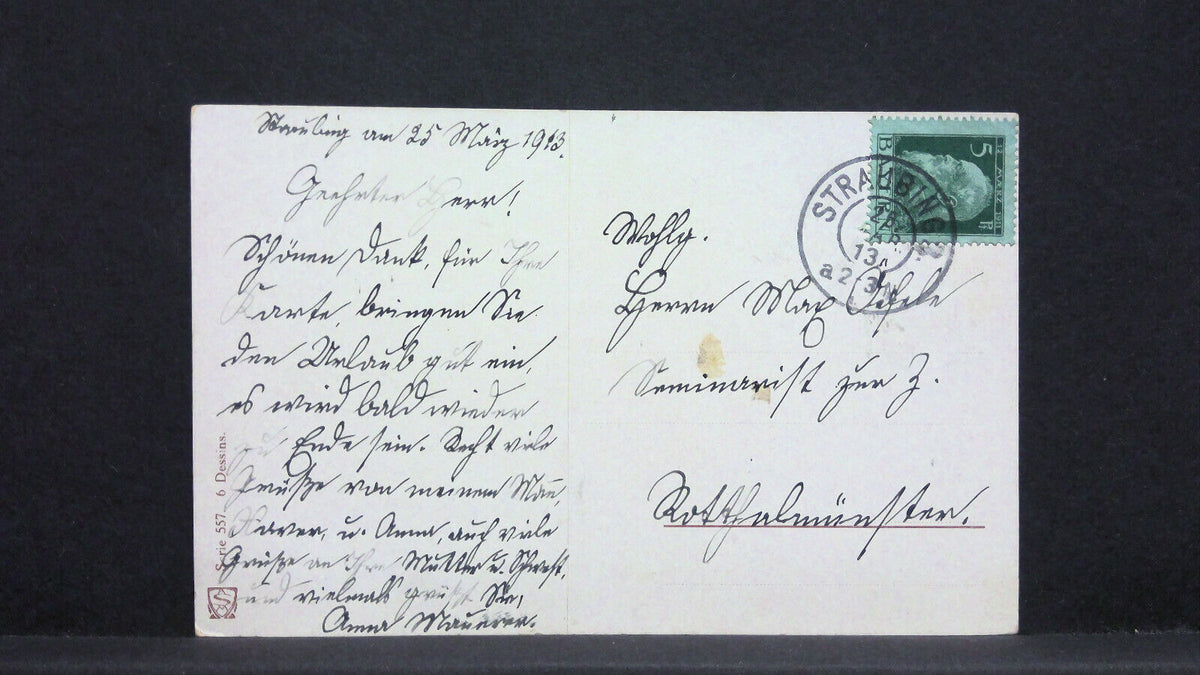 Straubing am 25 März 1913.
Geehrter Herr!
Schönen Dank, für Ihre
Karte, bringen Sie
den Urlaub gut ein,
es wird bald wieder
zu Ende sein. Recht viele
Grüße von meinem Man,
Xaver, u. Anna, auch viele
Grüße an Ihre Mutter u. Schwest,
und vielmals grüßt Sie,
Anna Mauerer.
Serie 557 6 Dessins.
Wohlg.
Herrn Max
Seminarist zur Z.
Rotthalmünster.
STRAUBING 2
MAR
13
a 2 3 N
5 Pf
BAYERN
12. MÄRZ 1911